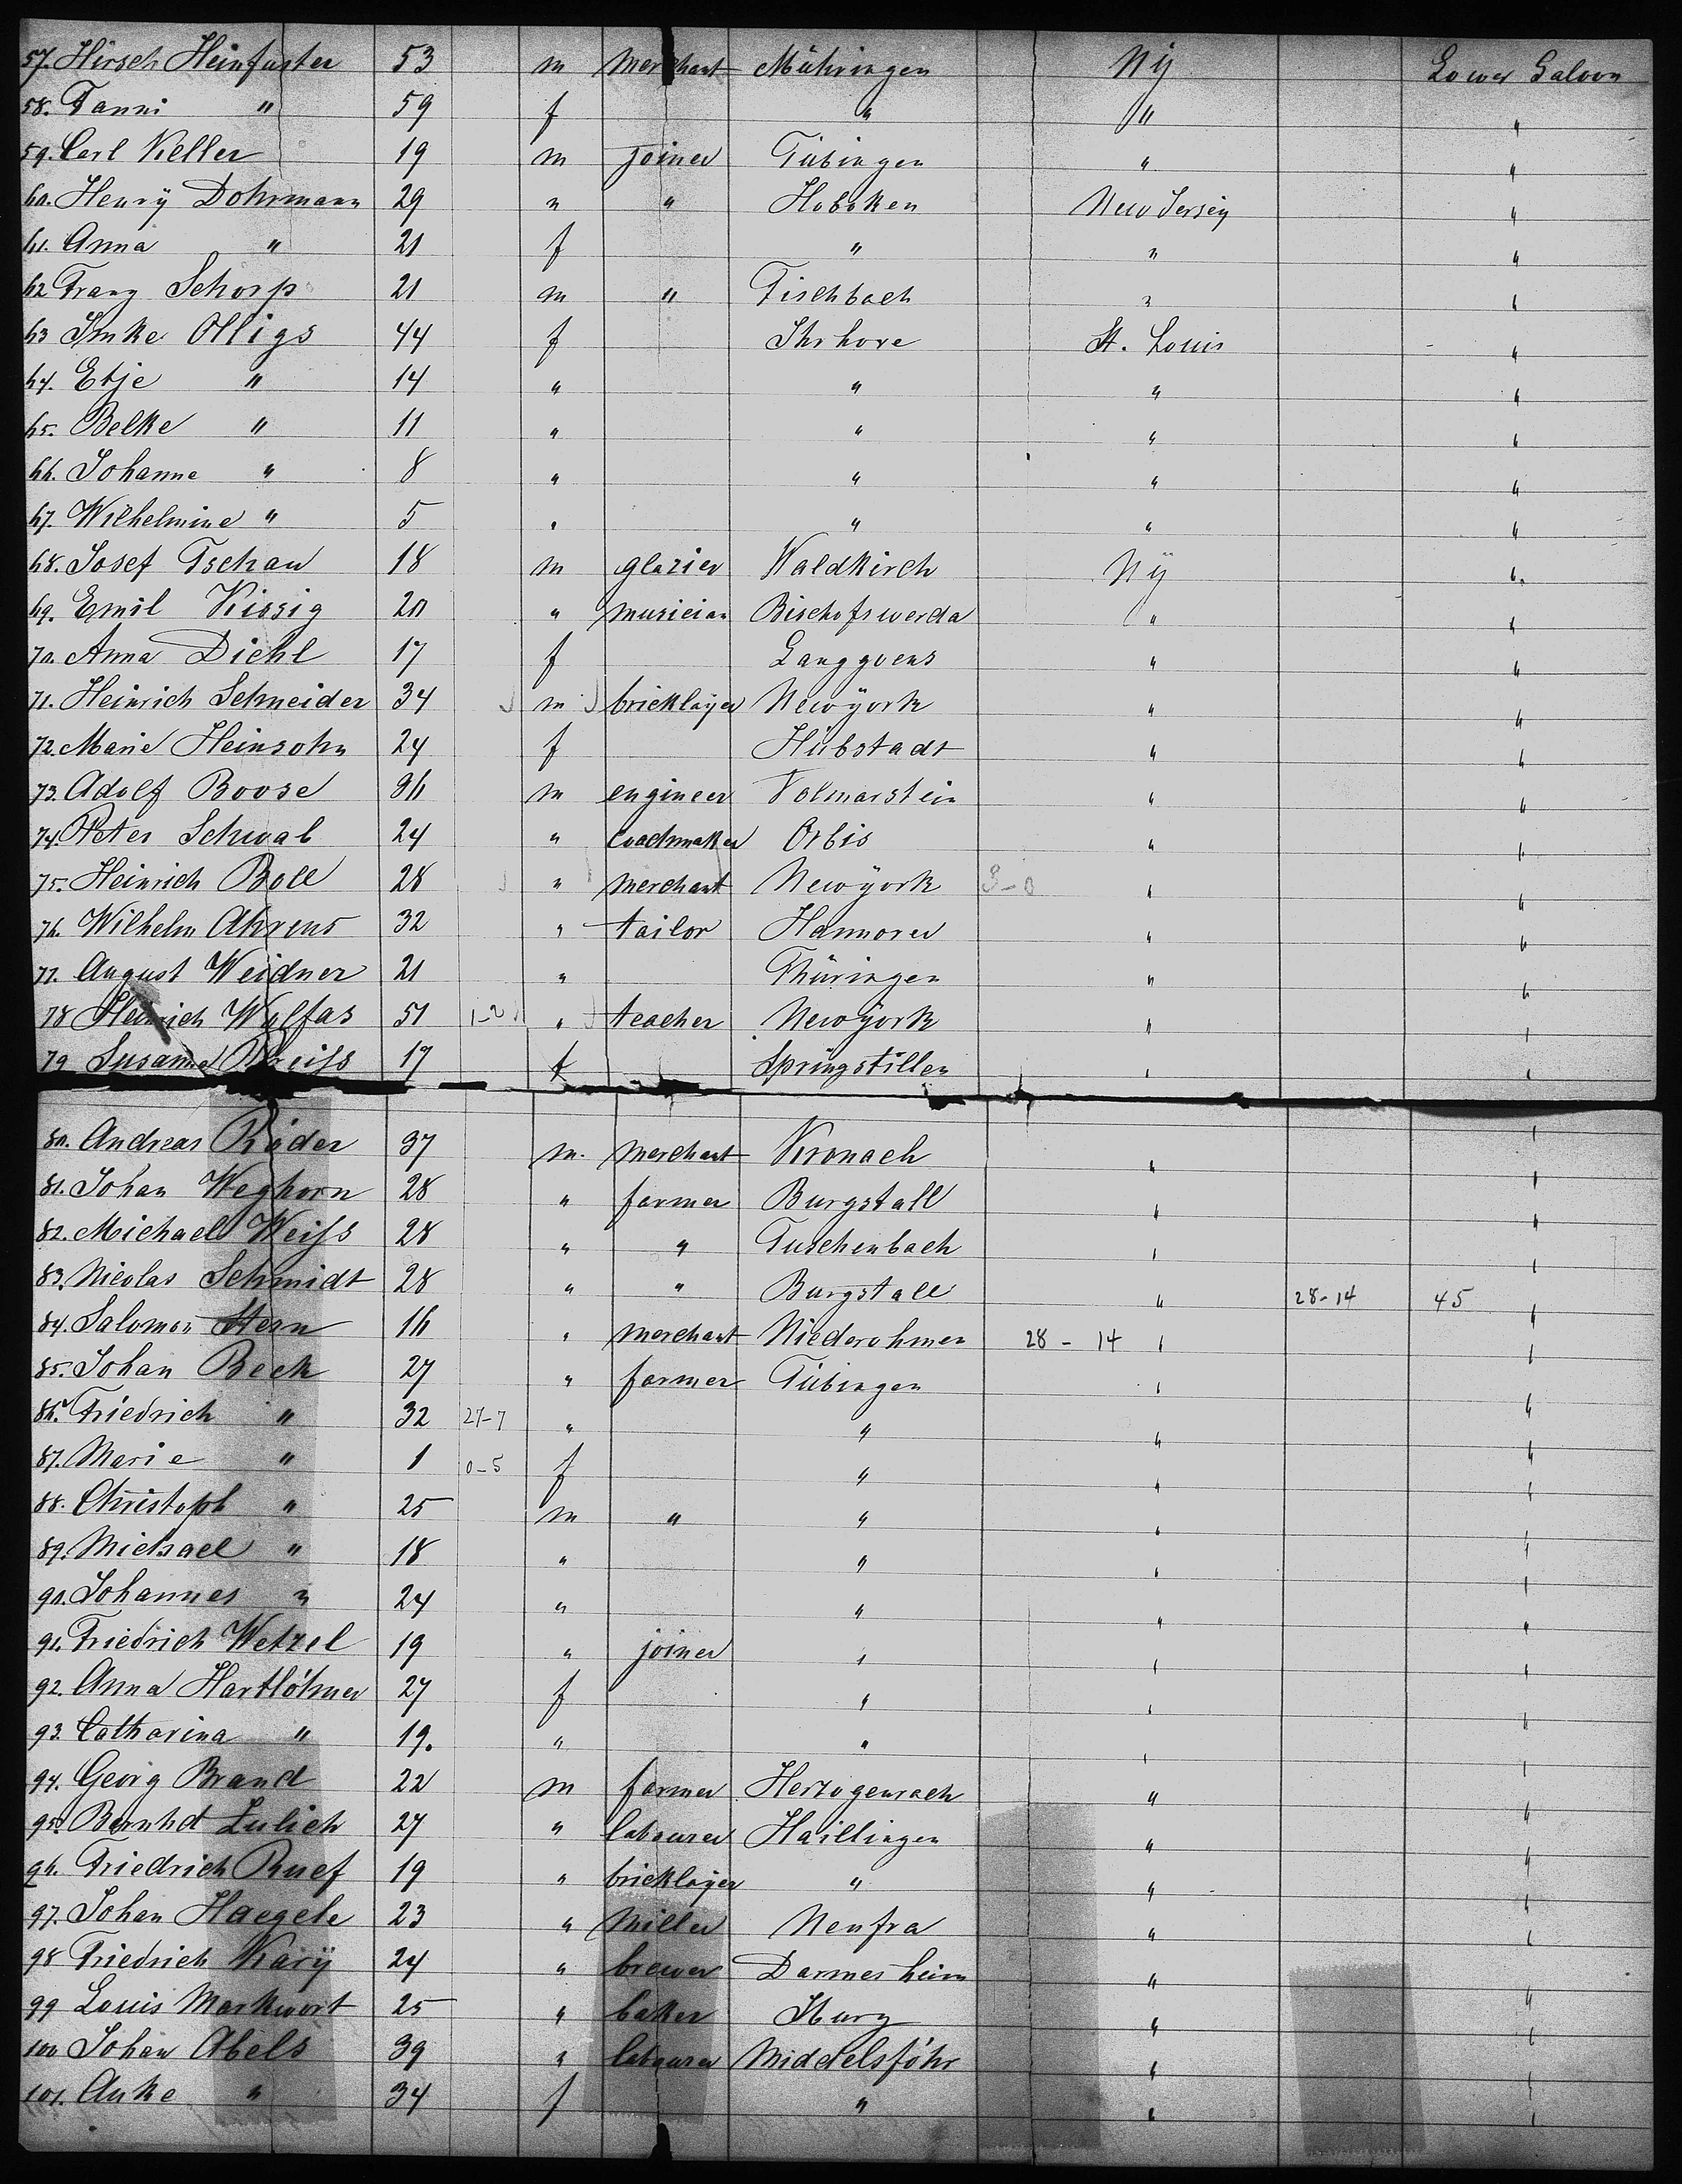 57. Hirsch Heinfurter 53 m merchant Mühringen Ny Lower Saloon
58. Fanni " 59 f " " "
59. Carl Keller 19 m joiner Tübingen " "
60. Henry Dohrmann 29 " " Hoboken New Jersey "
61. Anna " 21 f " " "
62 Franz Schorp 21 m " Fischbach " "
63 Imke Olligs 44 f Ihrhove St. Louis "
64. Etje " 14 " " " "
65. Belke " 11 " " " "
66. Johanne " 8 " " " "
67. Wilhelmine " 5 " " " "
68. Josef Tschan 18 m glazier Waldkirch Ny "
69. Emil Kissig 20 " musician Bischofswerda " "
70. Anna Diehl 17 f Langgoens " "
71. Heinrich Schneider 34 m bricklayer Newyork " "
72. Marie Heinsohn 24 f Hübstadt " "
73. Adolf Boose 36 m engineer Volmarstein " "
74. Peter Schwab 24 " coachmaker Orbis " "
75. Heinrich Boll 28 " merchant Newyork " "
76. Wilhelm Ahrens 32 " tailor Hannover " "
77. August Weidner 21 " Thüringen " "
78 Heinrich Wulfas 51 1-2 " teacher Newyork " "
79 Susanna 17 f Springstillen " "
80. Andreas Räder 37 m. merchant Kronach " "
81. Johan Weghorn 28 " farmer Burgstall " "
82. Michael Weiss 28 " " Tuschenbach " "
83. Nicolas Schmidt 28 " " Burgstall " 28-14 45 "
84. Salomon Stern 16 " merchant Niederohmen 28 - 14 " "
85. Johan Beck 27 " farmer Tübingen " "
86. Friedrich " 32 27-7 " " " "
87. Marie " 1 0-5 f " " "
88. Christoph " 25 m " " " "
89. Michael " 18 " " " "
90. Johannes " 24 " " " "
91. Friedrich Wetzel 19 " joiner " " "
92. Anna Hartlöhner 27 f " " "
93. Catharina " 19. " " " "
94. Georg Brand 22 m farmer Herzogenrach " "
95. Bernhd Lulich 27 " labourer Hailtingen " "
96. Friedrich Ruef 19 " bricklayer " " "
97. Johan Haegele 23 " miller Neufra " "
98 Friedrich Kary 24 " brewer Darmesheim " "
99 Louis Markwort 25 " baker Iburg " "
100 Johan Abels 39 " labourer Middelsföhr " "
101. Anke " 34 f " " "